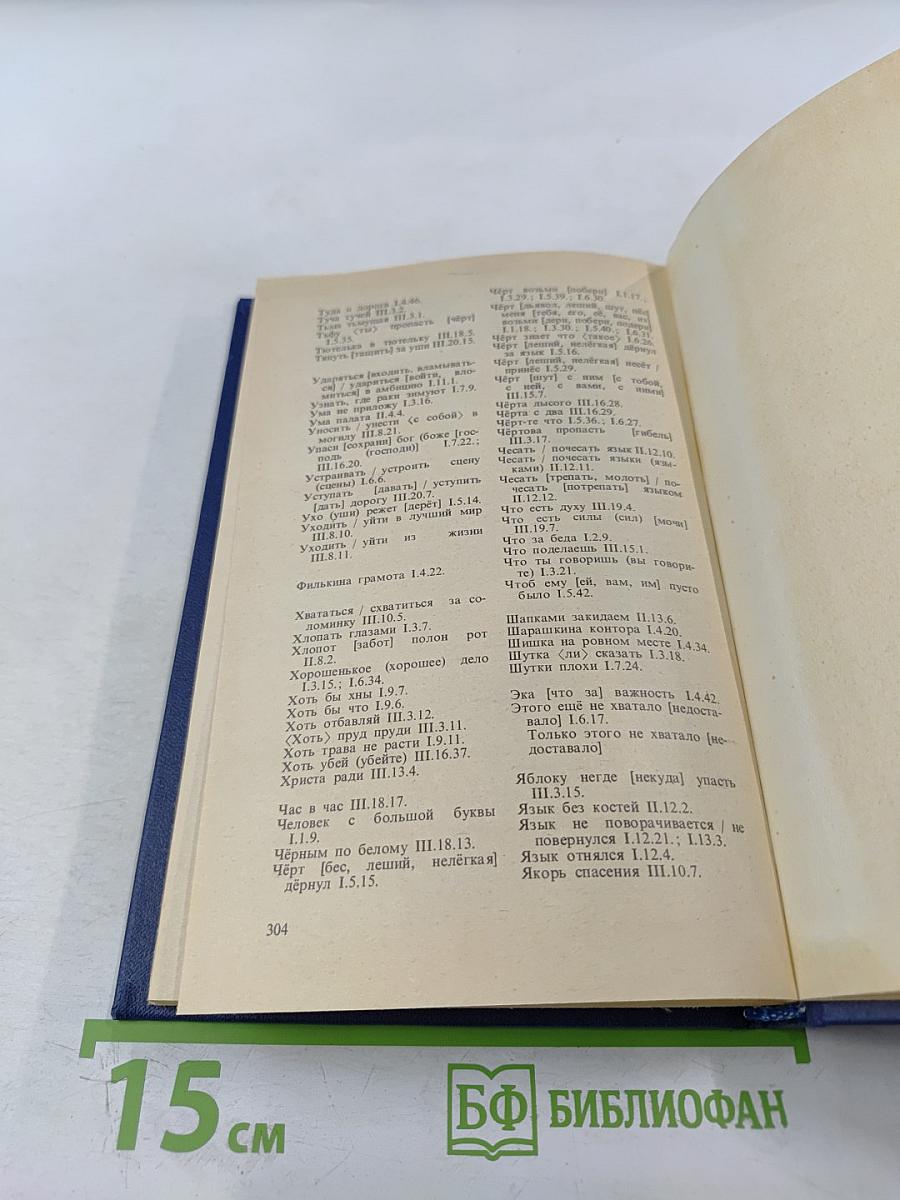 Туда и дорога I.4.46.
Туча тучей III.3.2.
Тьма тьмущая III.3.1.
Тьфу ⟨ты⟩ пропасть [чёрт]
I.5.35.
Тютелька в тютельку III.18.5.
Тянуть [тащить] за уши III.20.15.
Ударяться [входить, вламывать-
ся] / удариться [войти, вло-
миться] в амбицию I.11.1.
Узнать, где раки зимуют I.7.9.
Ума не приложу I.3.16.
Ума палата II.4.4.
Уносить / унести ⟨с собой⟩ в
могилу III.8.21.
Упаси [сохрани] бог (боже [гос-
подь (господи)] I.7.22.;
III.16.20.
Устраивать / устроить сцену
(сцены) I.6.6.
Уступать [давать] / уступить
[дать] дорогу III.20.7.
Ухо (уши) режет [дерёт] I.5.14.
Уходить / уйти в лучший мир
III.8.10.
Уходить / уйти из жизни
III.8.11.
Филькина грамота I.4.22.
Хвататься / схватиться за со-
ломинку III.10.5.
Хлопать глазами I.3.7.
Хлопот [забот] полон рот
II.8.2.
Хорошенькое (хорошее) дело
I.3.15.; I.6.34.
Хоть бы хны I.9.7.
Хоть бы что I.9.6.
Хоть отбавляй III.3.12.
⟨Хоть⟩ пруд пруди III.3.11.
Хоть трава не расти I.9.11.
Хоть убей (убейте) III.16.37.
Христа ради III.13.4.
Час в час III.18.17.
Человек с большой буквы
I.1.9.
Чёрным по белому III.18.13.
Чёрт [бес, леший, нелёгкая]
дёрнул I.5.15.
304
Чёрт возьми [побери] I.1.17.;
I.3.29.; I.5.39.; I.6.30.
Чёрт [дьявол, леший, шут, пёс]
меня [тебя, его, её, вас, их]
возьми [дери, побери, подери]
I.1.18.; I.3.30.; I.5.40.; I.6.31.
Чёрт знает что ⟨такое⟩ I.6.26.
Чёрт [леший, нелёгкая] дёрнул
за язык I.5.16.
Чёрт [леший, нелёгкая] несёт /
принёс I.5.29.
Чёрт [шут] с ним [с тобой,
с ней, с вами, с ними]
III.15.7.
Чёрта лысого III.16.28.
Чёрта с два III.16.29.
Чёрт-те что I.5.36.; I.6.27.
Чёртова пропасть [гибель]
III.3.17.
Чесать / почесать язык II.12.10.
Чесать / почесать языки (язы-
ками) II.12.11.
Чесать [трепать, молоть] / по-
чесать [потрепать] языком
II.12.12.
Что есть духу III.19.4.
Что есть силы (сил) [мочи]
III.19.7.
Что за беда I.2.9.
Что поделаешь III.15.1.
Что ты говоришь (вы говори-
те) I.3.21.
Чтоб ему [ей, вам, им] пусто
было I.5.42.
Шапками закидаем II.13.6.
Шарашкина контора I.4.20.
Шишка на ровном месте I.4.34.
Шутка ⟨ли⟩ сказать I.3.18.
Шутки плохи I.7.24.
Эка [что за] важность I.4.42.
Этого ещё не хватало [недоста-
вало] I.6.17.
Только этого не хватало [не-
доставало]
Яблоку негде [некуда] упасть
III.3.15.
Язык без костей II.12.2.
Язык не поворачивается / не
повернулся I.12.21.; I.13.3.
Язык отнялся I.12.4.
Якорь спасения III.10.7.
15 см
БФ БИБЛИОФАН